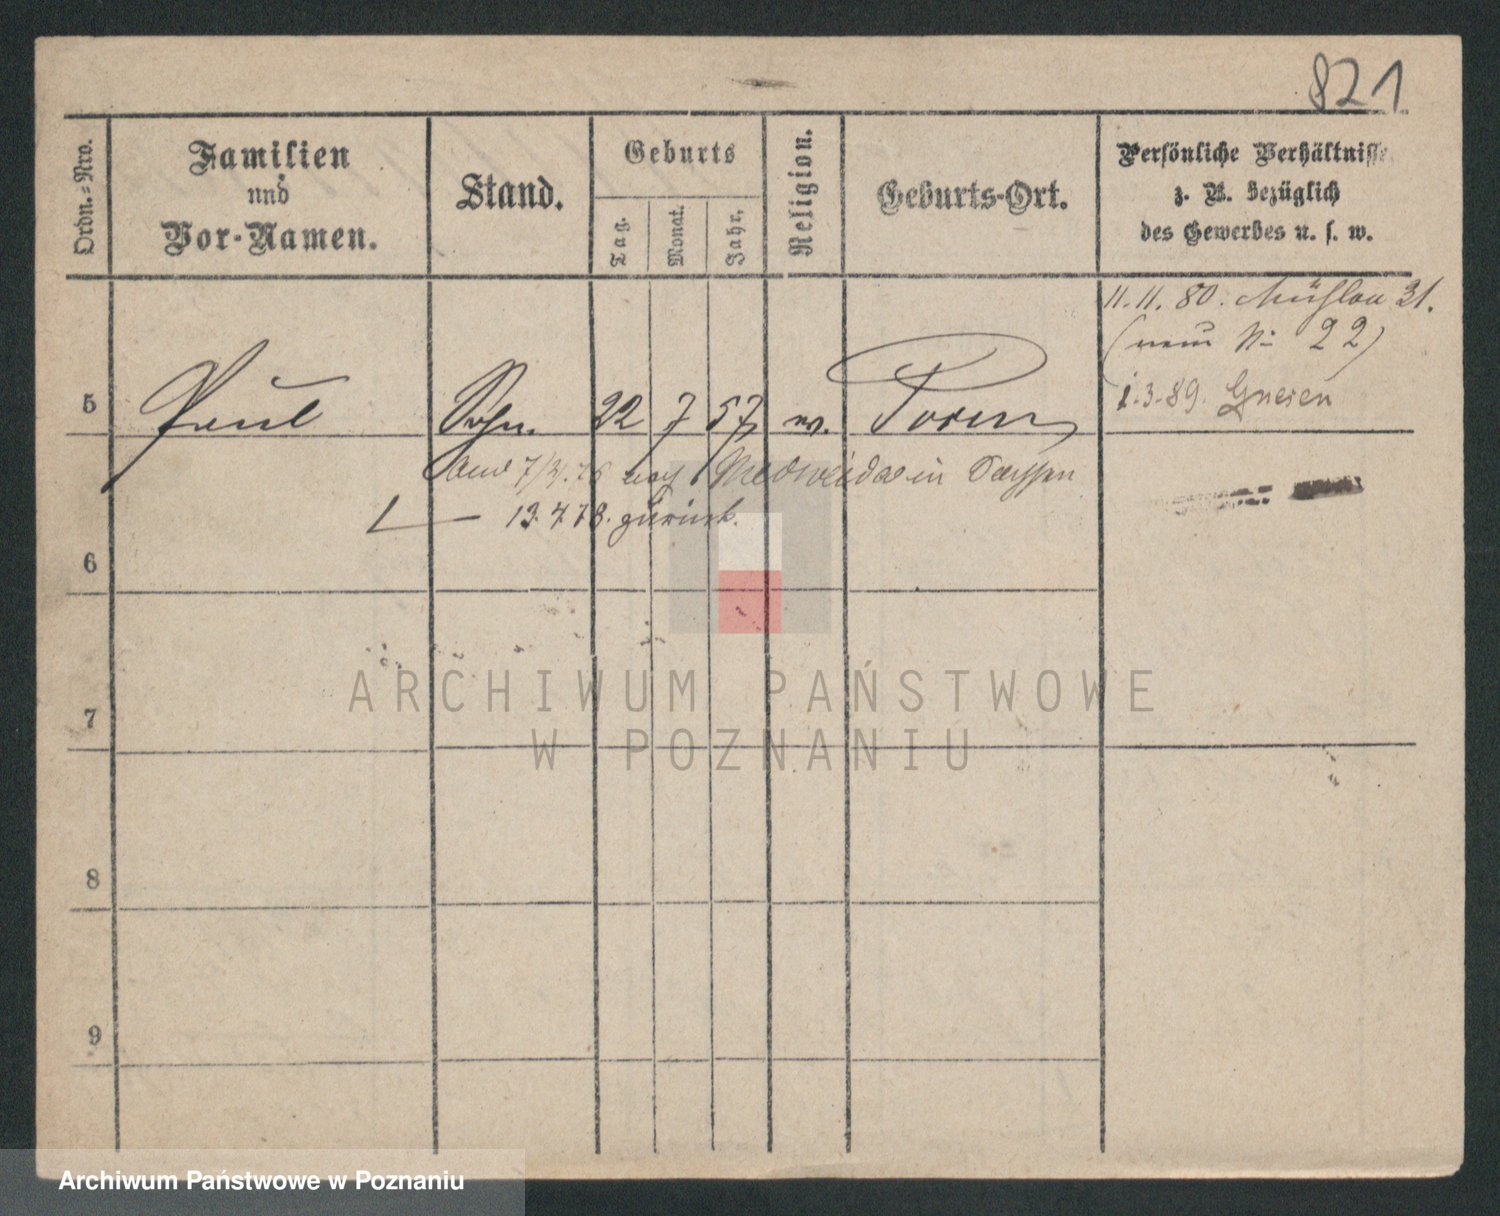 821
Ordn.-Nro.
Familien
und
Vor-Namen.
Stand.
Geburts
Tag.
Monat.
Jahr.
Religion.
Geburts-Ort.
Persönliche Verhältnisse
z. B. bezüglich
des Gewerbes u. s. w.
11.11.80. Mühlen 31.
(neue No 22)
1.3.89. Gnesen
5 Paul Sohn. 22 7 57 Posen
7/3.76 nach in Sachsen
13.4.78. zurück.
6
7
8
9
ARCHIWUM PAŃSTWOWE
W POZNANIU
Archiwum Państwowe w Poznaniu